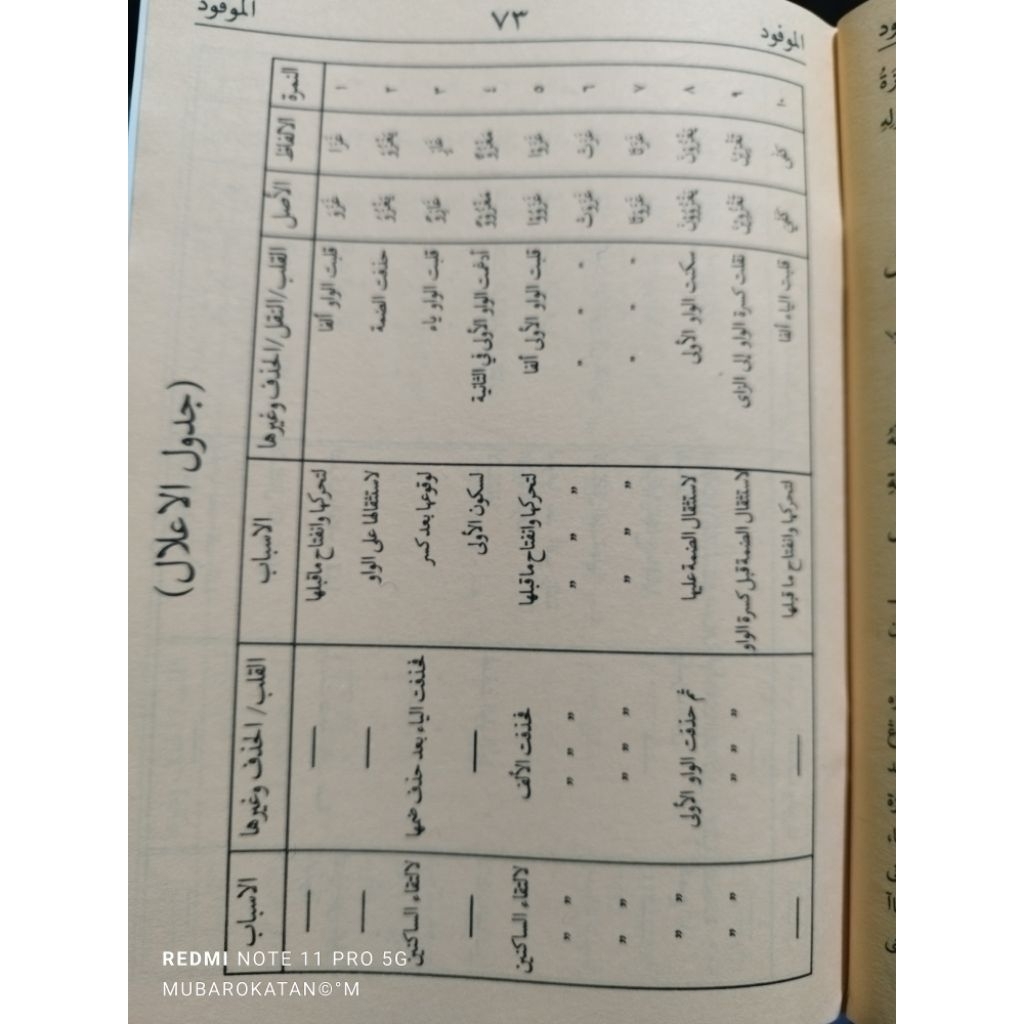 الموفود
٧٣
الموفود
(جدول الاعلال)
النمرة | الالفاظ | الأصل | القلب/النقل/الحذف وغيرها | الاسباب | القلب/ الحذف وغيرها | الاسباب
١ | غَزَا | غَزَوَ | قلبت الواو ألفا | لتحركها وانفتاح ماقبلها | — | —
٢ | يَغْزُوْ | يَغْزُوُ | حذفت الضمة | لاستثقالها على الواو | — | —
٣ | غَازٍ | غَازِوٌ | قلبت الواو ياء | لوقوعها بعد كسر | فحذفت الياء بعد حذف ضمها | لالتقاء الساكنين
٤ | مَغْزُوٌّ | مَغْزُوْوٌ | أدغمت الواو الأولى في الثانية | لسكون الأولى | — | —
٥ | غَزَوْا | غَزَوُوْا | قلبت الواو الأولى ألفا | لتحركها وانفتاح ماقبلها | فحذفت الألف | لالتقاء الساكنين
٦ | غَزَتْ | غَزَوَتْ | " " " | " " " | " " " | " "
٧ | غَزَتَا | غَزَوَتَا | " " " | " " " | " " " | " "
٨ | يَغْزُوْنَ | يَغْزُوُوْنَ | سكنت الواو الأولى | لاستثقال الضمة عليها | ثم حذفت الواو الأولى | " "
٩ | تَغْزِيْنَ | تَغْزُوِيْنَ | نقلت كسرة الواو إلى الزاى | لاستثقال الضمة قبل كسرة الواو | " " " | " "
١٠ | قلبت الياء ألفا | لتحركها وانفتاح ما قبلها | — | —
REDMI NOTE 11 PRO 5G
MUBAROKATAN©°M